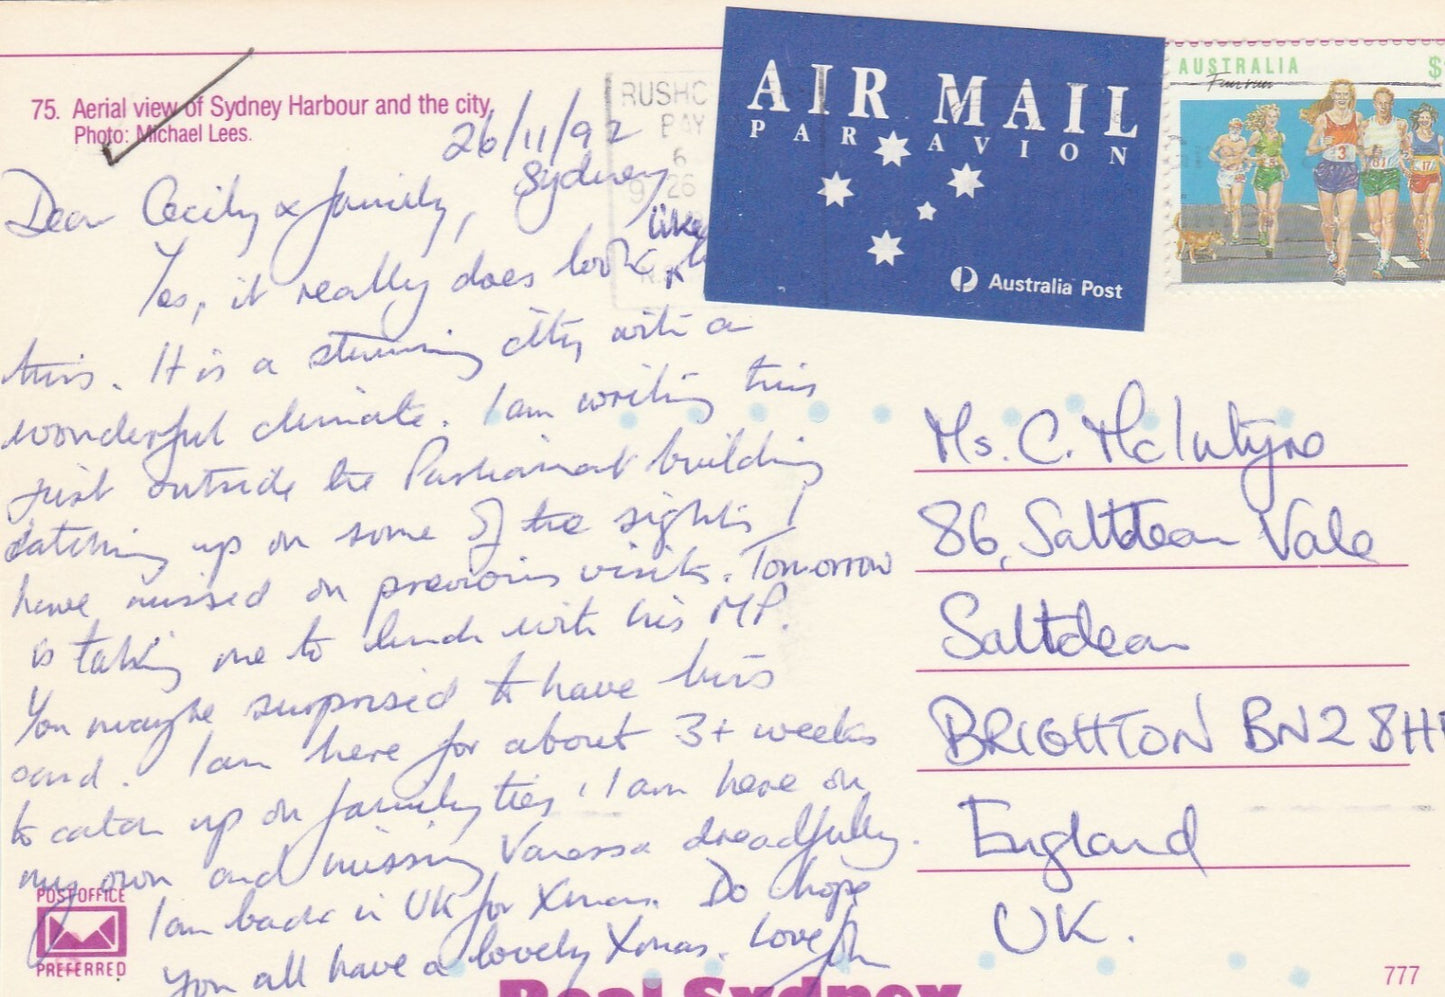 75. Aerial view of Sydney Harbour and the city.
Photo: Michael Lees.
26/11/92
Sydney
Dear Cecily & family,
Yes, it really does look like
this. It is a stunning city with a
wonderful climate. I am writing this
just outside the Parliament building
catching up on some of the sights I
have missed on previous visits. Tomorrow
is taking me to lunch with his MP.
You maybe surprised to have this
card. I am here for about 3+ weeks
to catch up on family ties. I am here on
my own and missing Vanessa dreadfully.
I am back in UK for Xmas. Do hope
you all have a lovely Xmas. Love
POST OFFICE
PREFERRED
RUSHC
BAY
6
26
AIR MAIL
PAR AVION
Australia Post
AUSTRALIA
$
Fun run
3
61
17
Ms. C. McIntyre
86, Saltdean Vale
Saltdean
BRIGHTON BN2 8H
England
UK.
Real Sydney
777